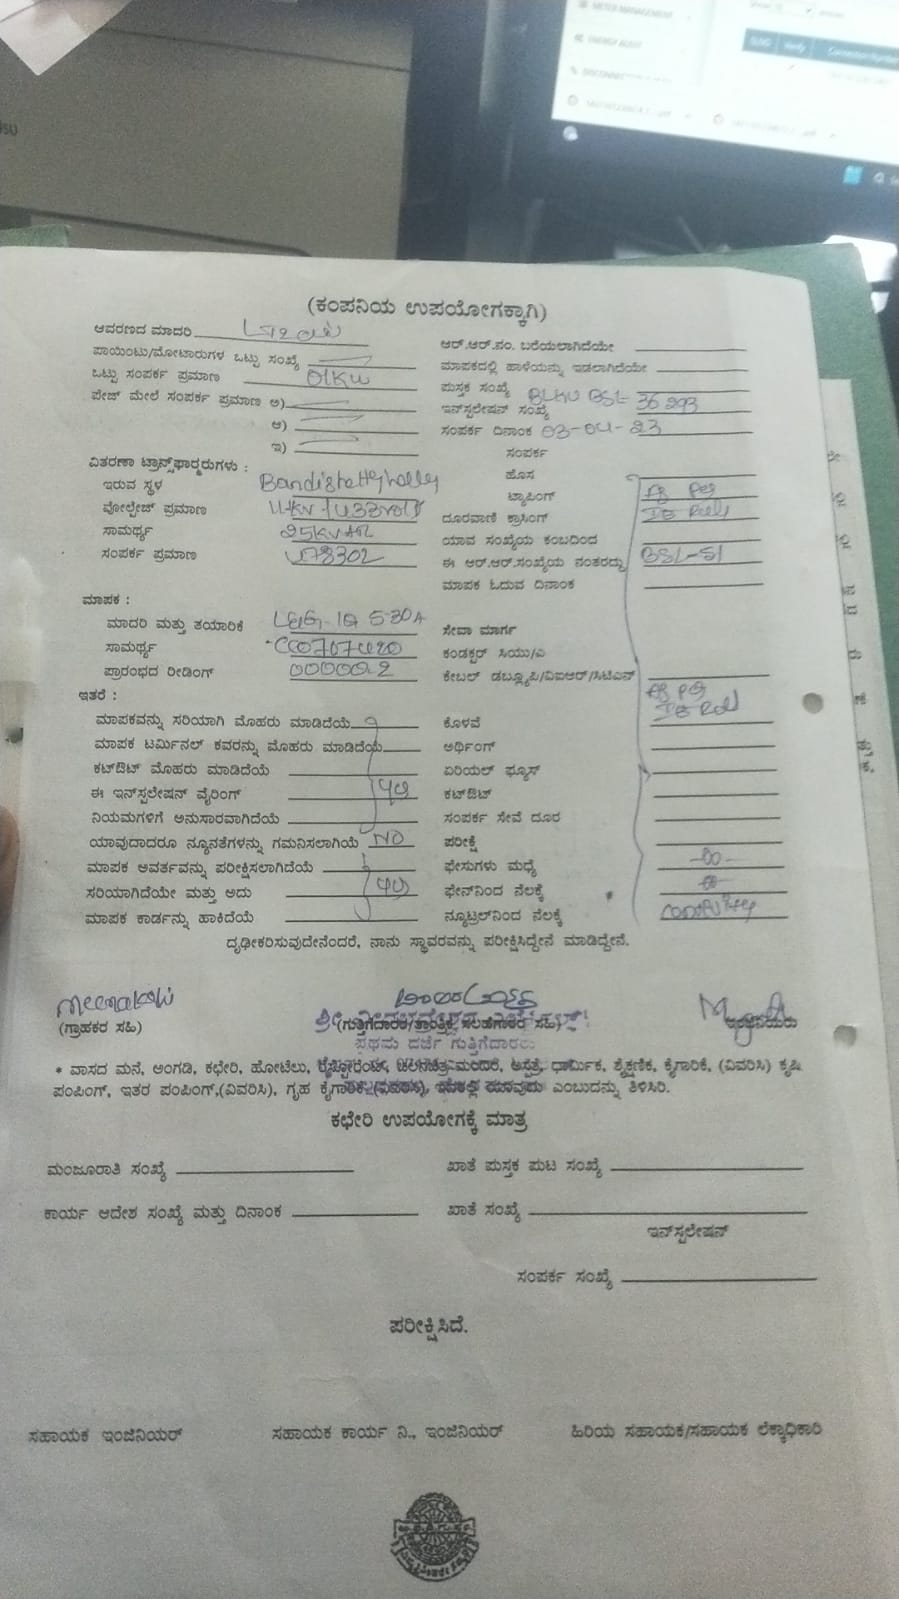 METER MANAGEMENT
ENERGY AUDIT
(ಕಂಪನಿಯ ಉಪಯೋಗಕ್ಕಾಗಿ)
ಆವರಣದ ಮಾದರಿ
ಆರ್.ಆರ್.ನಂ. ಬರೆಯಲಾಗಿದೆಯೇ
ಪಾಯಿಂಟು/ಮೋಟಾರುಗಳ ಒಟ್ಟು ಸಂಖ್ಯೆ
ಮಾಪಕದಲ್ಲಿ ಹಾಳೆಯನ್ನು ಇಡಲಾಗಿದೆಯೇ
ಒಟ್ಟು ಸಂಪರ್ಕ ಪ್ರಮಾಣ 01KW
ಪುಸ್ತಕ ಸಂಖ್ಯೆ
ಪೇಜ್ ಮೇಲೆ ಸಂಪರ್ಕ ಪ್ರಮಾಣ ಅ)
ಇನ್‌ಸ್ಟಲೇಷನ್ ಸಂಖ್ಯೆ BSL-36293
ಆ)
ಸಂಪರ್ಕ ದಿನಾಂಕ 03-04-23
ಇ)
ಸಂಪರ್ಕ
ವಿತರಣಾ ಟ್ರಾನ್ಸ್‌ಫಾರ್ಮರುಗಳು :
ಹೊಸ
ಇರುವ ಸ್ಥಳ Bandishettyhally
ಟ್ಯಾಪಿಂಗ್
ವೋಲ್ಟೇಜ್ ಪ್ರಮಾಣ 11KV/433volt
ದೂರವಾಣಿ ಕ್ರಾಸಿಂಗ್
ಸಾಮರ್ಥ್ಯ 25KVA
ಯಾವ ಸಂಖ್ಯೆಯ ಕಂಬದಿಂದ
ಸಂಪರ್ಕ ಪ್ರಮಾಣ
ಈ ಆರ್.ಆರ್.ಸಂಖ್ಯೆಯ ನಂತರದ್ದು BSL-51
ಮಾಪಕ ಓದುವ ದಿನಾಂಕ
ಮಾಪಕ :
ಮಾದರಿ ಮತ್ತು ತಯಾರಿಕೆ L&G-1Ø 5-30A
ಸೇವಾ ಮಾರ್ಗ
ಸಾಮರ್ಥ್ಯ
ಕಂಡಕ್ಟರ್ ಸಿಯು/ಎ
ಪ್ರಾರಂಭದ ರೀಡಿಂಗ್ 00000.2
ಕೇಬಲ್ ಡಬ್ಲ್ಯೂಪಿ/ವಿಐಆರ್/ಸಿಟಿಎಸ್
ಇತರೆ :
ಮಾಪಕವನ್ನು ಸರಿಯಾಗಿ ಮೊಹರು ಮಾಡಿದೆಯೆ
ಕೊಳವೆ
ಮಾಪಕ ಟರ್ಮಿನಲ್ ಕವರನ್ನು ಮೊಹರು ಮಾಡಿದೆಯೆ
ಅರ್ಥಿಂಗ್
ಕಟ್‌ಔಟ್ ಮೊಹರು ಮಾಡಿದೆಯೆ
ಏರಿಯಲ್ ಫ್ಯೂಸ್
ಈ ಇನ್‌ಸ್ಟಲೇಷನ್ ವೈರಿಂಗ್
ಕಟ್‌ಔಟ್
ನಿಯಮಗಳಿಗೆ ಅನುಸಾರವಾಗಿದೆಯೆ
ಸಂಪರ್ಕ ಸೇವೆ ದೂರ
ಯಾವುದಾದರೂ ನ್ಯೂನತೆಗಳನ್ನು ಗಮನಿಸಲಾಗಿಯೆ NO
ಪರೀಕ್ಷೆ
ಮಾಪಕ ಅವರ್ತವನ್ನು ಪರೀಕ್ಷಿಸಲಾಗಿದೆಯೆ
ಫೇಸುಗಳು ಮಧ್ಯೆ
ಸರಿಯಾಗಿದೆಯೇ ಮತ್ತು ಅದು
ಫೇಸ್‌ನಿಂದ ನೆಲಕ್ಕೆ
ಮಾಪಕ ಕಾರ್ಡನ್ನು ಹಾಕಿದೆಯೆ
ನ್ಯೂಟ್ರಲ್‌ನಿಂದ ನೆಲಕ್ಕೆ
ದೃಢೀಕರಿಸುವುದೇನೆಂದರೆ, ನಾನು ಸ್ಥಾವರವನ್ನು ಪರೀಕ್ಷಿಸಿದ್ದೇನೆ ಮಾಡಿದ್ದೇನೆ.
(ಗ್ರಾಹಕರ ಸಹಿ)
(ಗುತ್ತಿಗೆದಾರರ/ತಾಂತ್ರಿಕ ಸಲಹೆಗಾರರ ಸಹಿ)
ಇಂಜಿನಿಯರು
ಪ್ರಥಮ ದರ್ಜೆ ಗುತ್ತಿಗೆದಾರರು
* ವಾಸದ ಮನೆ, ಅಂಗಡಿ, ಕಛೇರಿ, ಹೋಟೆಲು, ರೆಸ್ಟೋರೆಂಟ್, ಚಲನಚಿತ್ರ ಮಂದಿರ, ಆಸ್ಪತ್ರೆ, ಧಾರ್ಮಿಕ, ಶೈಕ್ಷಣಿಕ, ಕೈಗಾರಿಕೆ, (ವಿವರಿಸಿ) ಕೃಷಿ
ಪಂಪಿಂಗ್, ಇತರ ಪಂಪಿಂಗ್,(ವಿವರಿಸಿ), ಗೃಹ ಕೈಗಾರಿಕೆ,(ವಿವರಿಸಿ), ಇದರಲ್ಲಿ ಯಾವುದು ಎಂಬುದನ್ನು ತಿಳಿಸಿರಿ.
ಕಛೇರಿ ಉಪಯೋಗಕ್ಕೆ ಮಾತ್ರ
ಮಂಜೂರಾತಿ ಸಂಖ್ಯೆ
ಖಾತೆ ಪುಸ್ತಕ ಪುಟ ಸಂಖ್ಯೆ
ಕಾರ್ಯ ಆದೇಶ ಸಂಖ್ಯೆ ಮತ್ತು ದಿನಾಂಕ
ಖಾತೆ ಸಂಖ್ಯೆ
ಇನ್‌ಸ್ಟಲೇಷನ್
ಸಂಪರ್ಕ ಸಂಖ್ಯೆ
ಪರೀಕ್ಷಿಸಿದೆ.
ಸಹಾಯಕ ಇಂಜಿನಿಯರ್
ಸಹಾಯಕ ಕಾರ್ಯ ನಿ., ಇಂಜಿನಿಯರ್
ಹಿರಿಯ ಸಹಾಯಕ/ಸಹಾಯಕ ಲೆಕ್ಕಾಧಿಕಾರಿ